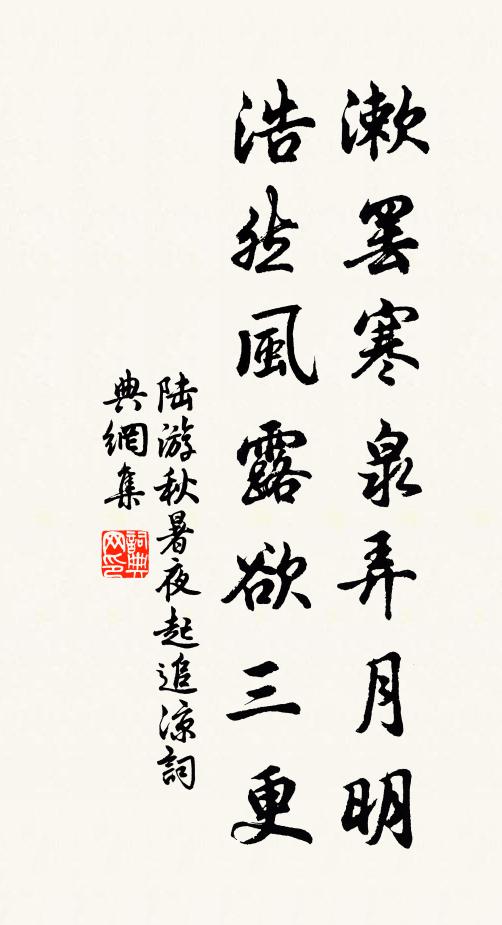 漱罷寒泉弄月明
浩然風露欲三更
陆游秋暑夜起追凉詞
典網集
詞典网印